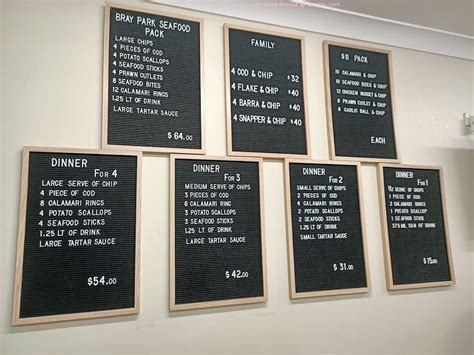 BRAY PARK SEAFOOD
PACK
LARGE CHIPS
4 PIECES OF COD
4 POTATO SCALLOPS
4 SEAFOOD STICKS
4 PRAWN CUTLETS
8 SEAFOOD BITES
12 CALAMARI RINGS
1.25 LT OF DRINK
LARGE TARTAR SAUCE
$64.00
FAMILY
4 COD & CHIP $32
4 FLAKE & CHIP $40
4 BARRA & CHIP $40
4 SNAPPER & CHIP $40
$11 PACK
10 CALAMARI & CHIP
10 SEAFOOD BITES & CHIP
12 CHICKEN NUGGET & CHIP
8 PRAWN CUTLET & CHIP
8 GARLIC BALL & CHIP
EACH
DINNER
FOR 4
LARGE SERVE OF CHIP
4 PIECE OF COD
8 CALAMARI RINGS
4 POTATO SCALLOPS
4 SEAFOOD STICKS
1.25 LT OF DRINK
LARGE TARTAR SAUCE
$54.00
DINNER
FOR 3
MEDIUM SERVE OF CHIPS
3 PIECE OF COD
8 CALAMARI RINGS
3 POTATO SCALLOPS
3 SEAFOOD STICKS
1.25 LT OF DRINK
LARGE TARTAR SAUCE
$42.00
DINNER
FOR 2
SMALL SERVE OF CHIPS
2 PIECES OF COD
4 CALAMARI RINGS
2 POTATO SCALLOPS
2 SEAFOOD STICKS
1.25 LT OF DRINK
SMALL TARTAR SAUCE
$31.00
DINNER
FOR 1
1/2 SERVE OF CHIPS
1 PIECE OF COD
2 CALAMARI RING
1 POTATO SCALLOPS
1 SEAFOOD STICKS
375 ML CAN OF DRINK
$15.00